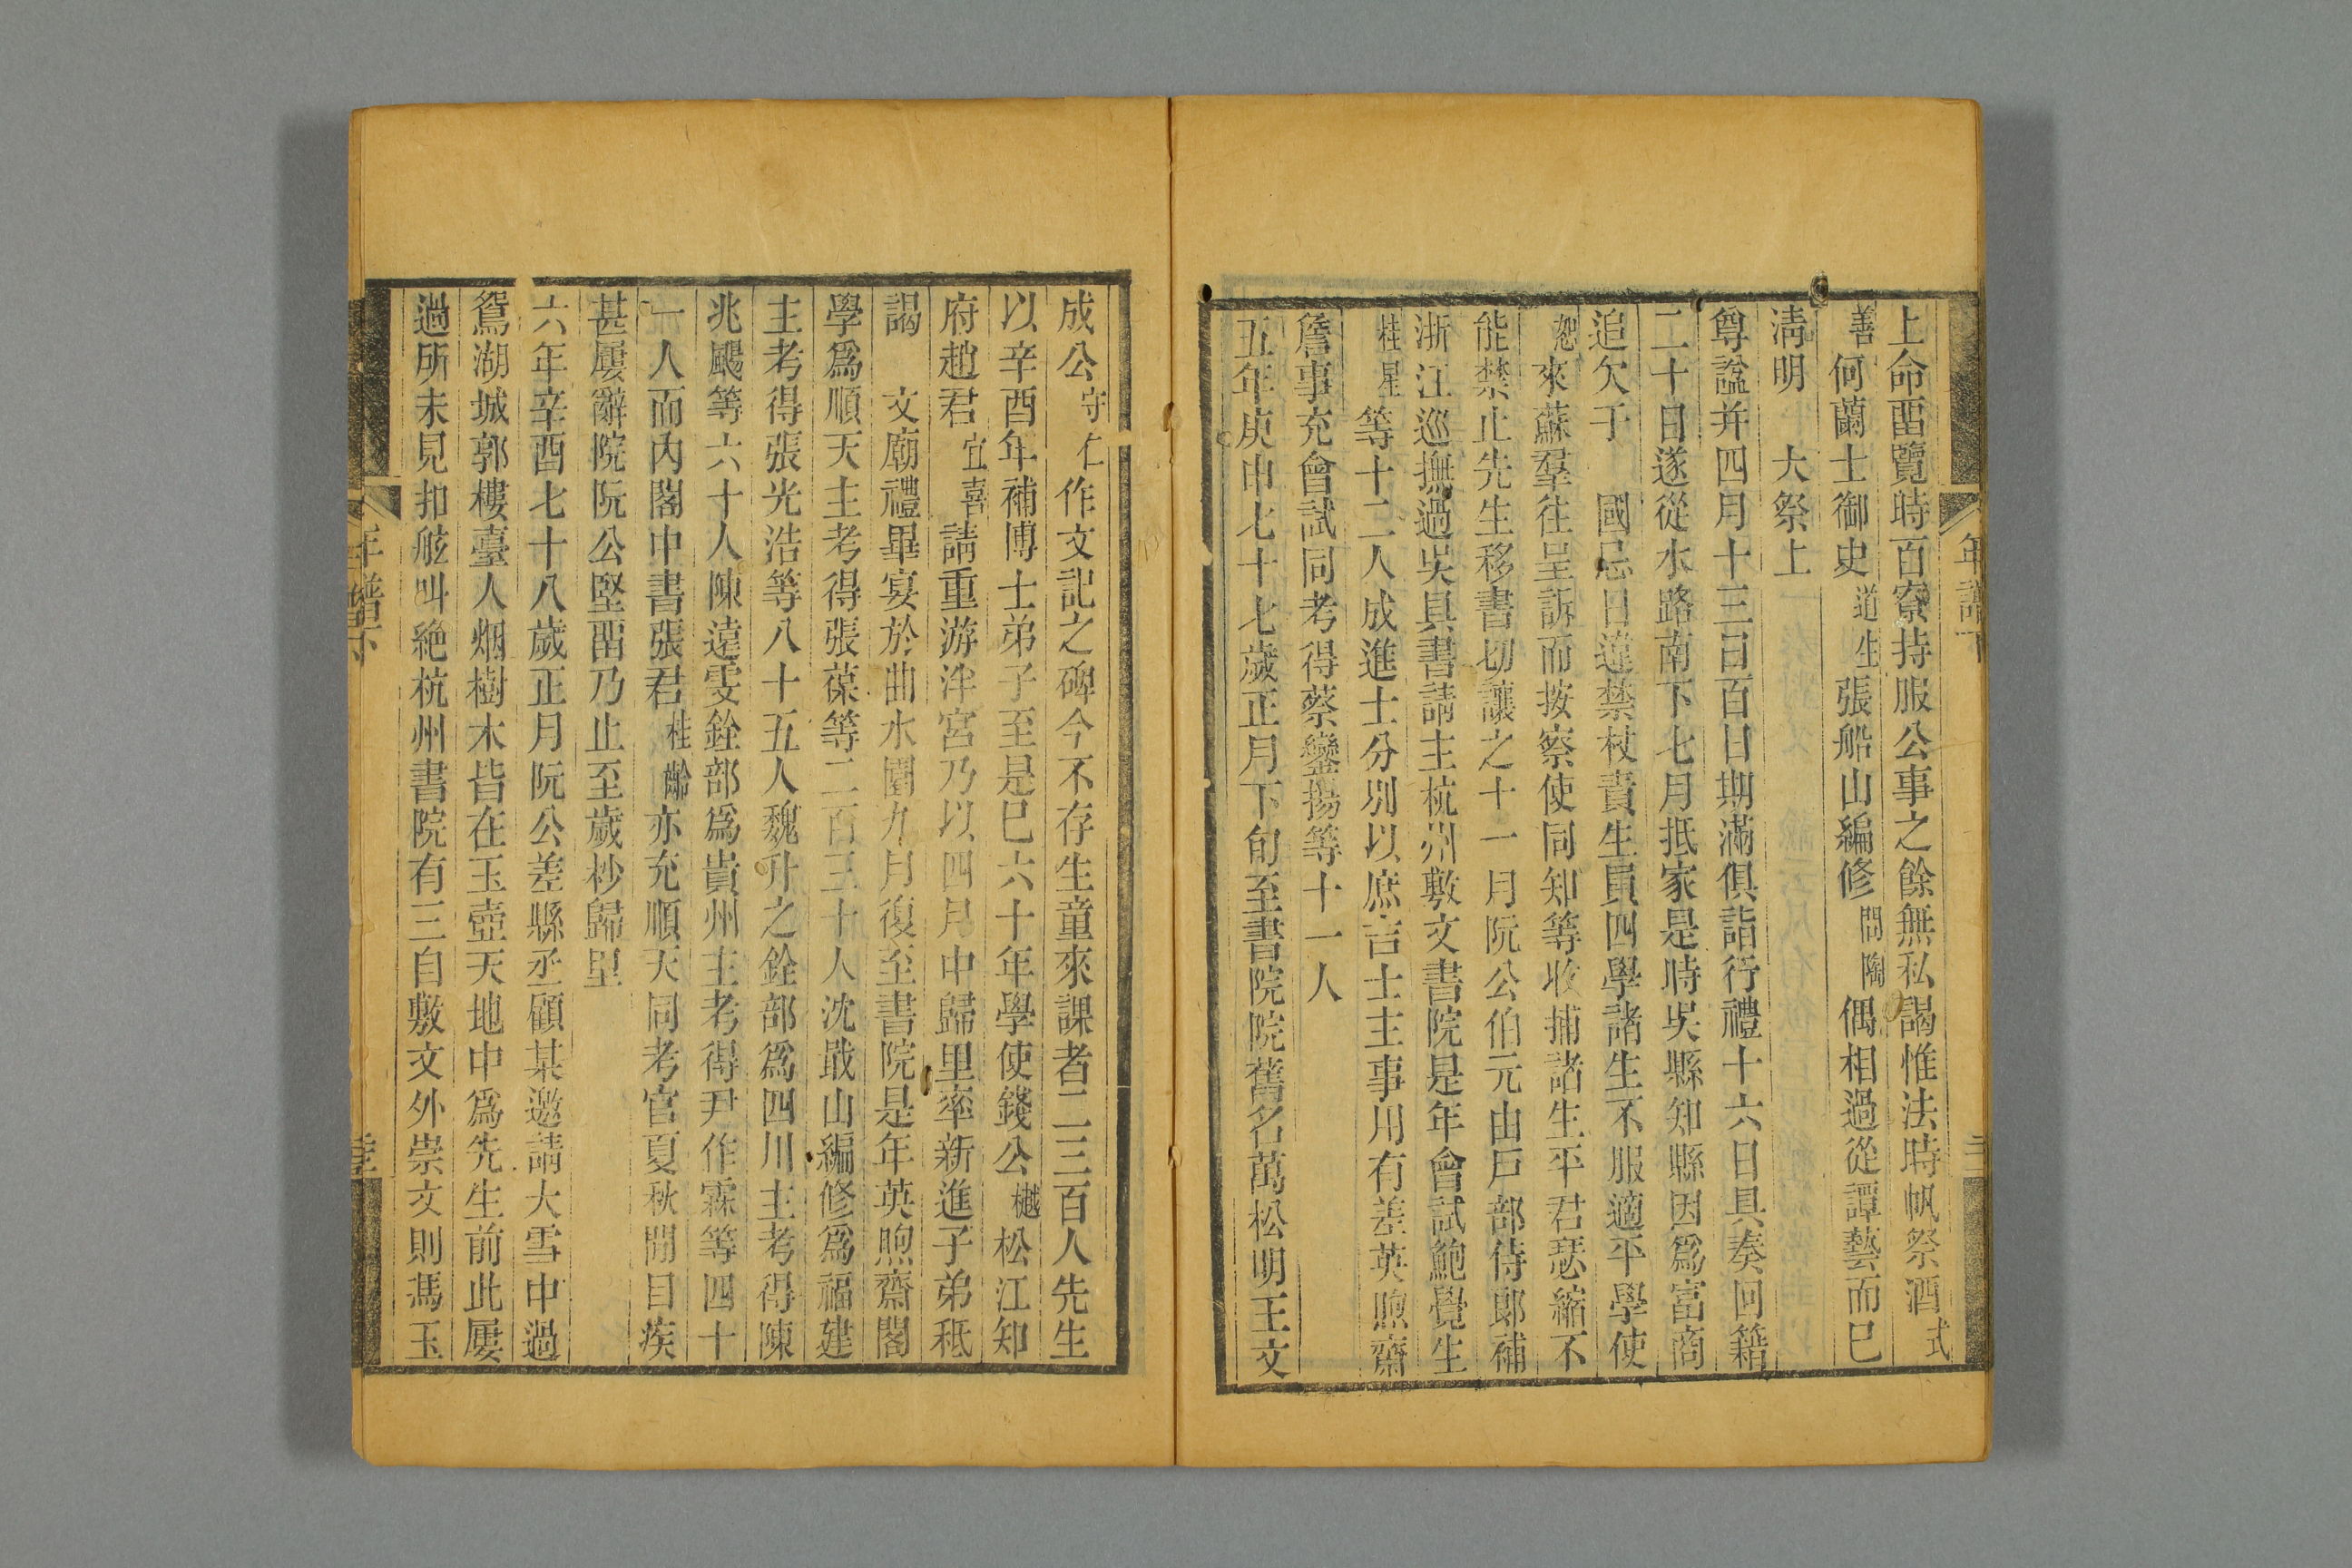 上命畱覽時百寮持服公事之餘無私謁惟法時帆祭酒式
善何蘭士御史道生張船山編修問陶偶相過從譚藝而已
淸明 大祭上
尊諡并四月十三日百日期滿俱詣行禮十六日具奏回籍
二十日遂從水路南下七月抵家是時吳縣知縣因爲富商
追欠于 國忌日違禁杖責生員四學諸生不服適平學使
恕來蘇羣往呈訴而按察使同知等收捕諸生平君瑟縮不
能禁止先生移書切讓之十一月阮公伯元由戸部侍郞補
浙江巡撫過吳具書請主杭州敷文書院是年會試鮑覺生
桂星等十二人成進士分别以庶吉士主事用有差英煦齋
詹事充會試同考得蔡鑾揚等十一人
五年庚申七十七歲正月下旬至書院院舊名萬松明王文
年譜下
成公守仁作文記之碑今不存生童來課者二三百人先生
以辛酉年補博士弟子至是已六十年學使錢公樾松江知
府趙君宜喜請重游泮宮乃以四月中歸里率新進子弟秪
謁 文廟禮畢宴於曲水園九月復至書院是年英煦齋閣
學爲順天主考得張葆等二百三十人沈戢山編修爲福建
主考得張光浩等八十五人魏升之銓部爲四川主考得陳
兆颺等六十人陳遠雯銓部爲貴州主考得尹作霖等四十
一人而內閣中書張君桂齡亦充順天同考官夏秋間目疾
甚屢辭院阮公堅畱乃止至歲杪歸里
六年辛酉七十八歲正月阮公差縣丞顧某邀請大雪中過
鴛湖城郭樓臺人烟樹木皆在玉壺天地中爲先生前此屢
過所未見扣舷呌絶杭州書院有三自敷文外崇文則馮玉
年譜下